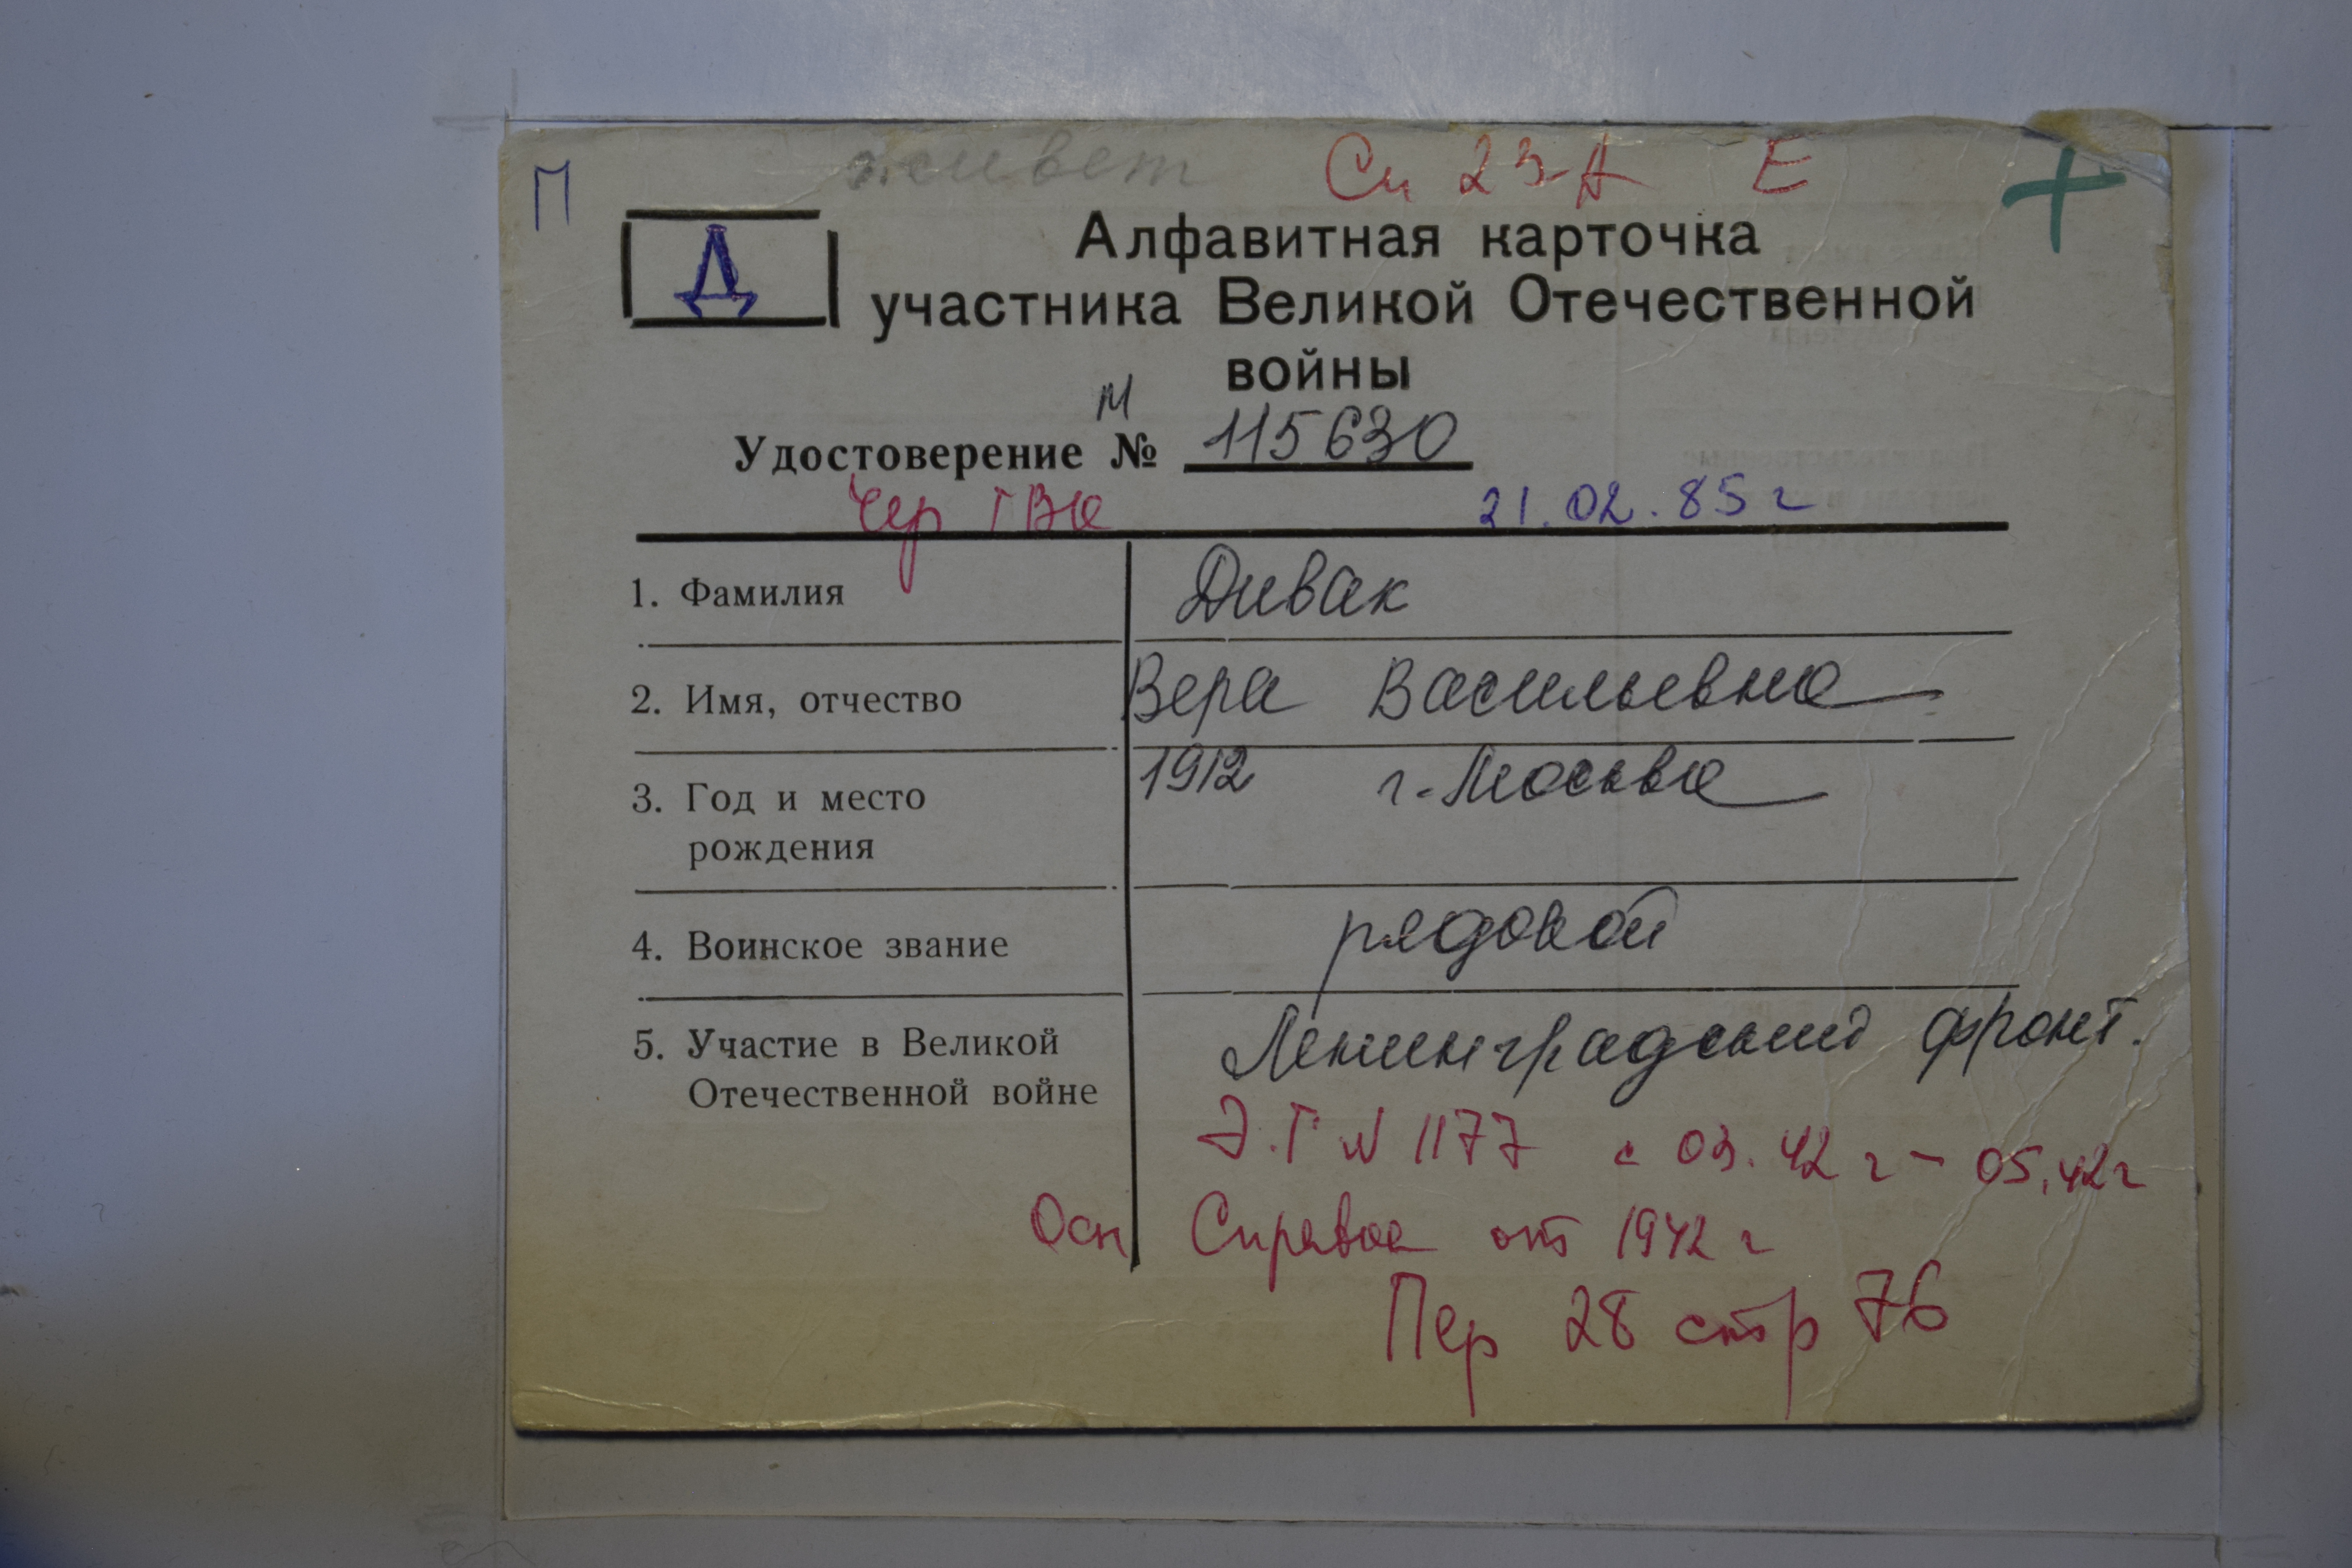 живет Сп 23-А Е
П
Д
Алфавитная карточка
участника Великой Отечественной
войны
М
Удостоверение № 115630
Чер ГВК 21.02.85 г
1. Фамилия Дивак
2. Имя, отчество Вера Васильевна
3. Год и место рождения 1912 г. Москва
4. Воинское звание рядовой
5. Участие в Великой Ленинградский фронт.
Отечественной войне
Э.Г N 1177 с 03.42 г - 05.42 г
Осн Справка от 1942 г
Пер 28 стр 76